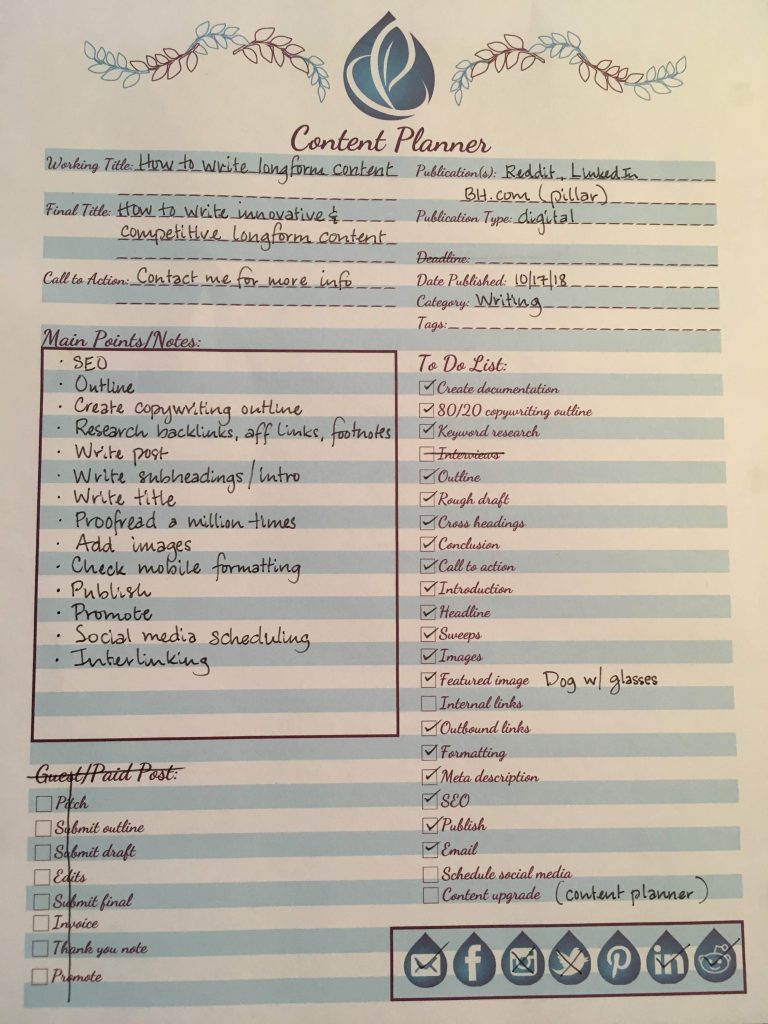 Content Planner
Working Title: How to write longform content
Final Title: How to write innovative &
competitive longform content
Call to Action: Contact me for more info
Publication(s): Reddit, LinkedIn
BH.com (pillar)
Publication Type: digital
Deadline:
Date Published: 10/17/18
Category: Writing
Tags:
Main Points/Notes:
· SEO
· Outline
· Create copywriting outline
· Research backlinks, aff links, footnotes
· Write post
· Write subheadings/intro
· Write title
· Proofread a million times
· Add images
· Check mobile formatting
· Publish
· Promote
· Social media scheduling
· Interlinking
Guest/Paid Post:
Pitch
Submit outline
Submit draft
Edits
Submit final
Invoice
Thank you note
Promote
To Do List:
Create documentation
80/20 copywriting outline
Keyword research
Interviews
Outline
Rough draft
Cross headings
Conclusion
Call to action
Introduction
Headline
Sweeps
Images
Featured image Dog w/ glasses
Internal links
Outbound links
Formatting
Meta description
SEO
Publish
Email
Schedule social media
Content upgrade (content planner)